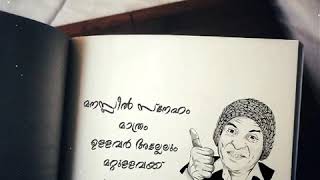 മനസ്സിൽ സ്നേഹം
മാത്രം
ഉള്ളവർ അല്ലേലും
മറ്റുള്ളവയ്ക്ക്